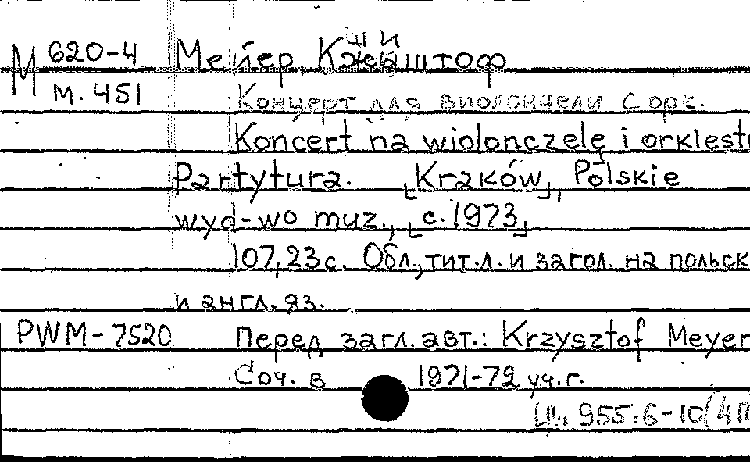 М 620-4 Мейер, Кжиштоф
м. 451 Концерт для виолончели с орк.
Koncert na wiolonczelę i orkiestr
Partytura. [Kraków], Polskie
wyd-wo muz., [c. 1973]
107,23с. Обл., тит.л. и загол. на польск
и англ. яз.
PWM-7520 Перед загл. авт.: Krzysztof Meyer
Соч. в 1971-72 уч.г.
955.6-10